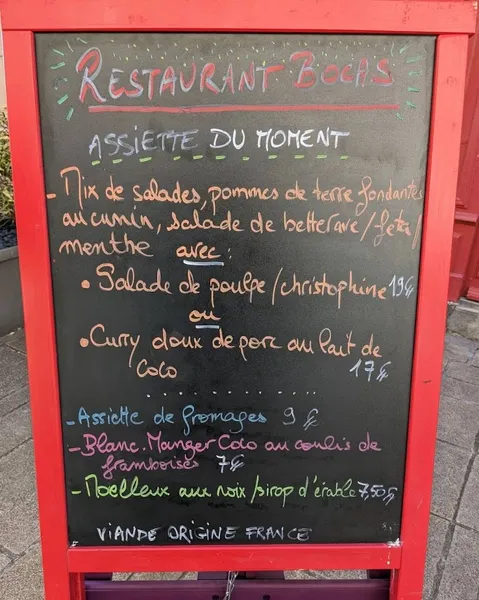 RESTAURANT BOCAS
ASSIETTE DU MOMENT
- Mix de salades, pommes de terre fondantes
au cumin, salade de betterave / feta /
menthe avec :
• Salade de poulpe / christophine 19€
ou
• Curry doux de porc au lait de
coco 17€
..........
- Assiette de fromages 9€
- Blanc-Manger Coco au coulis de
framboises 7€
- Moelleux aux noix / sirop d'érable 7,50€
VIANDE ORIGINE FRANCE